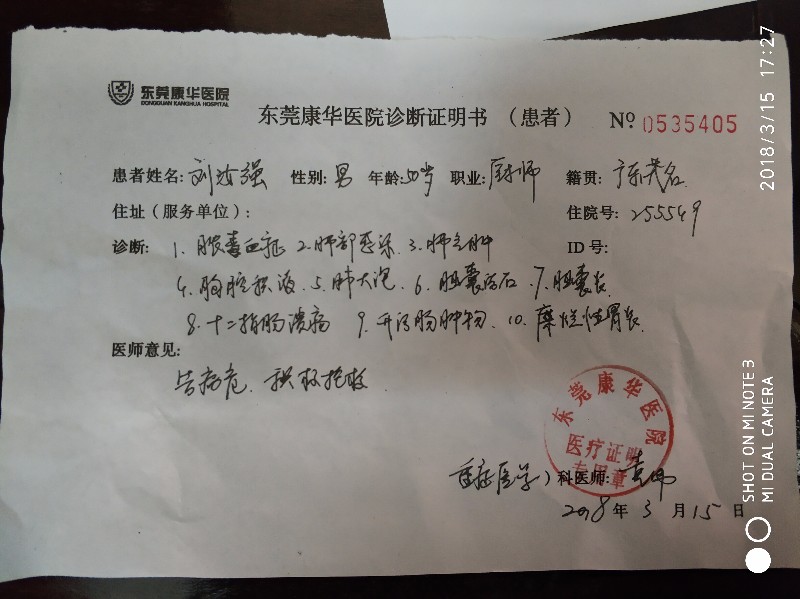 东莞康华医院
DONGGUAN KANGHUA HOSPITAL
东莞康华医院诊断证明书（患者） Nº 0535405
患者姓名: 刘汝强 性别: 男 年龄: 50岁 职业: 厨师 籍贯: 广东茂名
住址（服务单位）: 住院号: 255549
诊断: 1. 脓毒血症 2. 肺部感染 3. 肺气肿 ID号:
4. 胸腔积液 5. 肺大泡 6. 胆囊结石 7. 胆囊炎
8. 十二指肠溃疡 9. 升结肠肿物 10. 糜烂性胃炎
医师意见:
告病危、积极抢救
东莞康华医院
医疗证明
专用章
重症医学）科医师:
2018年3月15日
2018/3/15 17:27
SHOT ON MI NOTE 3
MI DUAL CAMERA